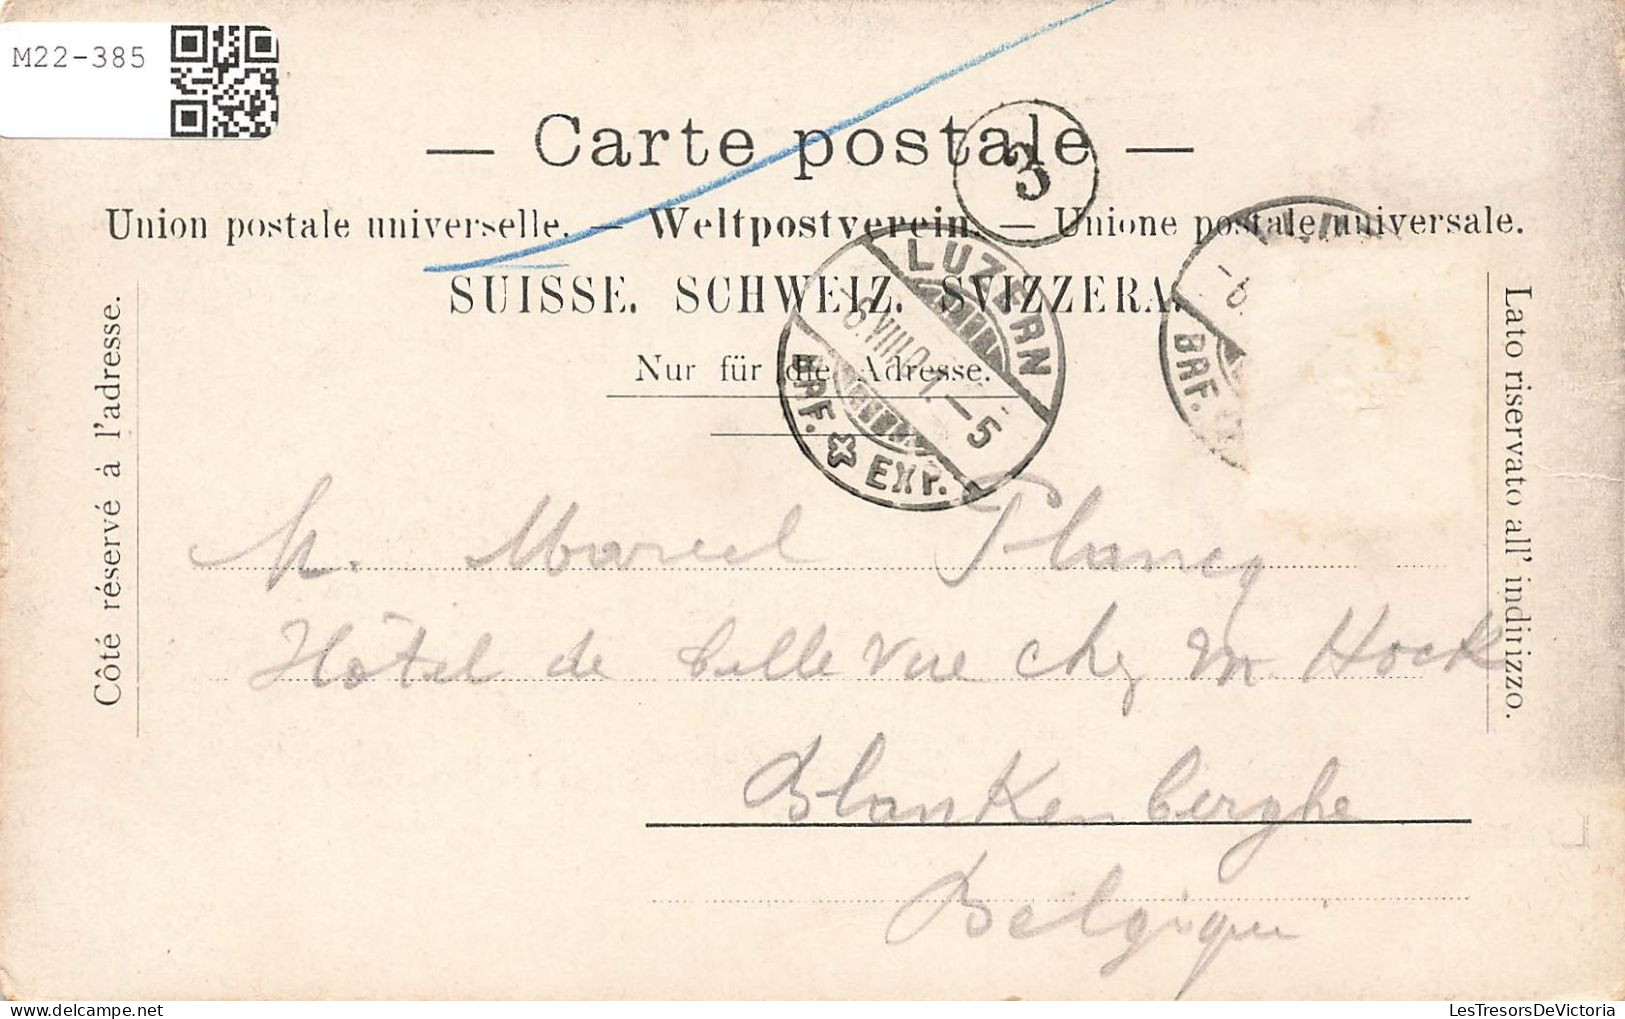 M22-385
— Carte postale —
3
Union postale universelle. — Weltpostverein. — Unione postale universale.
SUISSE. SCHWEIZ. SVIZZERA.
Nur für die Adresse.
Côté réservé à l'adresse.
Lato riservato all' indirizzo.
LUZERN
-6.VIII.01.-5
BRF. EXP.
-6.
BRF.
M. Marcel Plancq
Hôtel de belle vue chez M. Hock
Blankenberghe
Belgique
LesTresorsDeVictoria